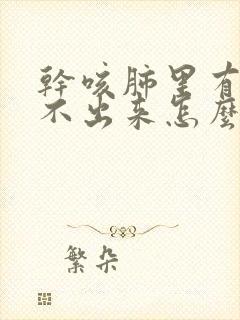 幹咳肺里有
不出来怎麼
繁朵